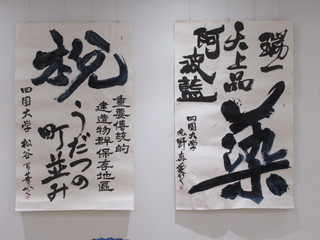 瑞一
天上品
阿波藍
染
四国大学
重要傳統的
建造物群保存地區
梲
うだつの
町並み
四国大学 松谷